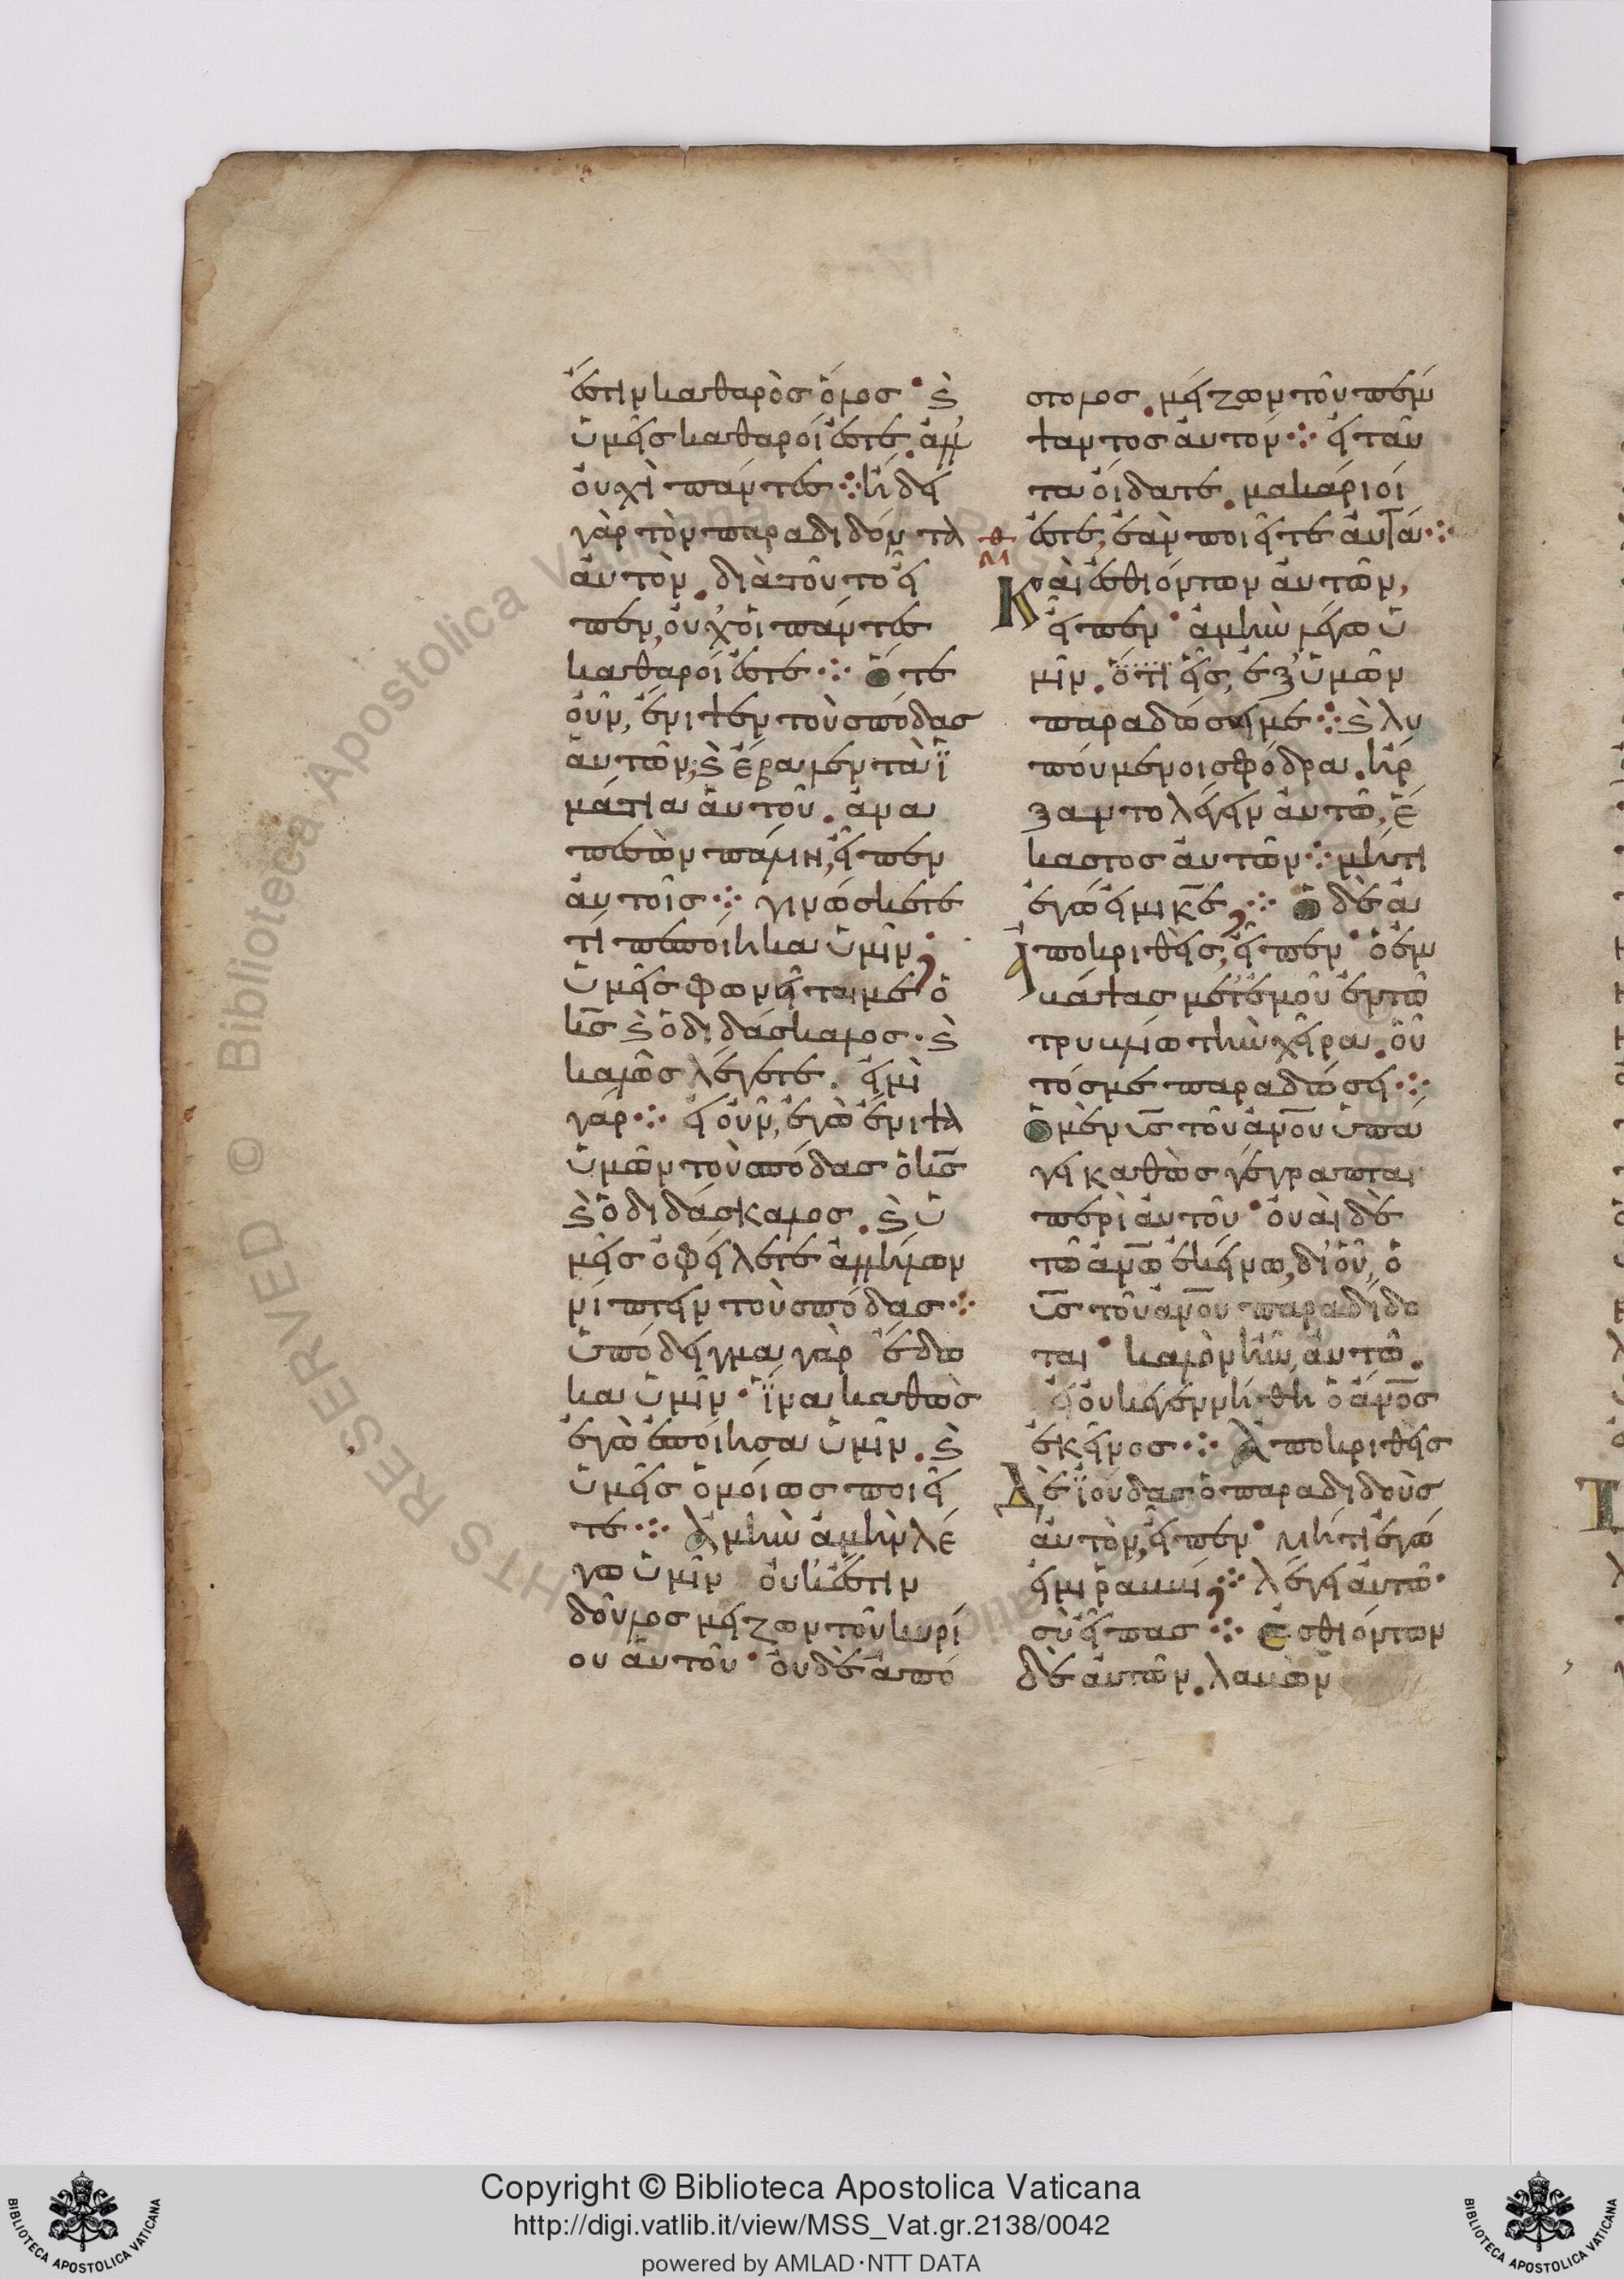 ἐστιν καθαρὸς ὅλος · ϗ
ὑμεῖς καθαροί ἐστε . ἀλλ'
οὐχὶ πάντες ⁘ ᾔδει
γὰρ τὸν παραδιδόντα
αὐτὸν . διὰ τοῦτο εἶ
πεν, οὐχ' οἱ πάντες
καθαροί ἐστε ⁘ Ὅτε
οὖν, ἔνιψεν τοὺς πόδας
αὐτῶν, ϗ ἔλαβεν τὰ ἱ
μάτια αὐτοῦ . ἀνα
πεσὼν πάλιν, εἶπεν
αὐτοῖς ⁘ γινώσκετε
τί πεποίηκα ὑμῖν;
ὑμεῖς φωνεῖται με ὁ
κ̅ς̅ ϗ ὁ διδάσκαλος · ϗ
καλῶς λέγετε . εἰμὶ
γάρ ⁘ εἰ οὖν, ἐγὼ ἔνιψα
ὑμῶν τοὺς πόδας ὁ κ̅ς̅
ϗ ὁ διδάσκαλος . ϗ ὑ
μεῖς ὀφείλετε ἀλλήλων
νίπτειν τοὺς πόδας ⁘
ὑπόδειγμα γὰρ ἔδω
κα ὑμῖν · ἵνα καθὼς
ἐγὼ ἐποίησα ὑμῖν . ϗ
ὑμεῖς ὁμοίως ποιεῖ
τε ⁘ Ἀμὴν ἀμὴν λέ
γω ὑμῖν οὐκ' ἔστιν
δοῦλος μείζων τοῦ κυρί
ου αὐτοῦ · οὐδὲ ἀπό
στολος . μείζων τοῦ πέμ
ψαντος αὐτόν ⁘ εἰ ταῦ
τα οἴδατε . μακάριοί
ἐστε, ἐὰν ποιεῖτε αὐτά ⁘
Καὶ ἐσθιόντων αὐτῶν,
εἶπεν · ἀμὴν λέγω ὑ
μῖν . ὅτι εἷς, ἐξ' ὑμῶν
παραδώσει με ⁘ ϗ λυ
πούμενοι σφόδρα . ἤρ
ξαντο λέγειν αὐτῶ, ἕ
καστος αὐτῶν ⁘ μήτι
ἐγώ εἰμι κ̅ε̅; ⁘ Ὁ δὲ ἀ
ποκριθεὶς, εἶπεν · ὁ ἐμ
βάψας μετ' ἐμοῦ ἐν τῶ
τρυβλίω τὴν χεῖρα . οὗ
τός με παραδώσει ⁘
Ὁ μὲν υ̅ς̅ τοῦ ἀν̅ου̅ ὑπά
γει καθὼς γέγραπται
περὶ αὐτοῦ · οὐαὶ δὲ
τῶ ἀν̅ω̅ ἐκείνω, δι' οὗ, ὁ
υ̅ς̅ τοῦ ἀν̅ου̅ παραδίδο
ται · καλὸν ἦν, αὐτῶ .
εἰ οὐκ ἐγεννήθη ὁ ἀν̅ο̅ς̅
ἐκεῖνος ⁘ Ἀποκριθεὶς
δὲ ἰούδας ὁ παραδιδοὺς
αὐτὸν, εἶπεν · μήτι ἐγώ
εἰμι ῥαββί; ⁘ λέγει αὐτῶ ·
σὺ εἶπας ⁘ Ἐσθιόντων
δὲ αὐτῶν . λαβὼν
Copyright © Biblioteca Apostolica Vaticana
http://digi.vatlib.it/view/MSS_Vat.gr.2138/0042
powered by AMLAD·NTT DATA